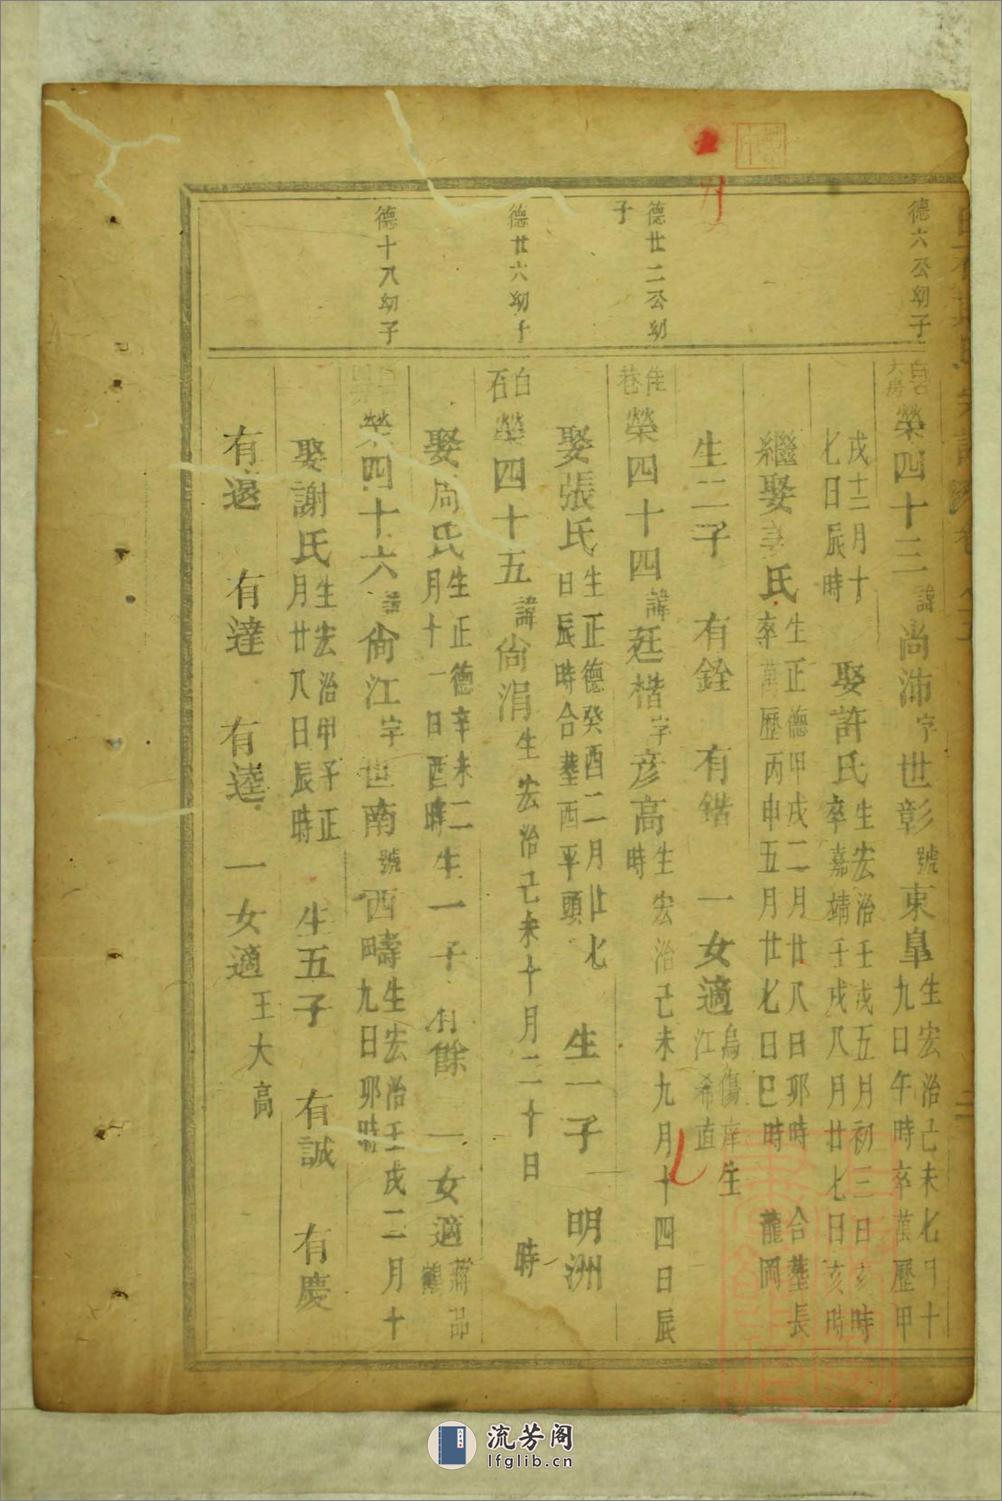 德六公幼子
德廿二公幼
子
德廿六幼子
德十八幼子
榮四十三諱尚沛字世彰號東皐生宏治己未七月十
九日午時卒萬歷甲
戌十二月十
七日辰時
娶許氏生宏治壬戌五月初三日亥時
卒嘉靖壬戌八月廿七日亥時
繼娶氏生正德甲戌二月廿八日卯時合塟長
卒萬歷丙申五月廿七日巳時龍岡
生二子 有銓 有鍇 一女適烏傷庠生
江希直
榮四十四諱廷楷字彥高生宏治己未九月十四日辰
時
娶張氏生正德癸酉二月廿七
日辰時合塟西平頭
生一子 明洲
白石
榮四十五諱尙涓生宏治己未十月二十日 時
娶周氏生正德辛未二
月十一日酉時
生一子 有餘 一女適
榮四十六諱尙江字世南號西疇生宏治壬戌二月十
九日卯時
娶謝氏生宏治甲子正
月廿八日辰時
生五子 有誠 有慶
有退 有達 有逵 一女適王大高
流芳阁
lfglib.cn